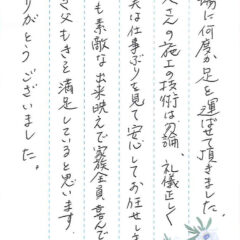 場に何度か足を運ばせて頂きました。
さんの施工の技術は勿論、礼儀正しく
実は仕事ぶりを見て安心してお任せしま
も素敵な出来映えで家族全員喜んで
父もきっと満足していると思います。
りがとうございました。